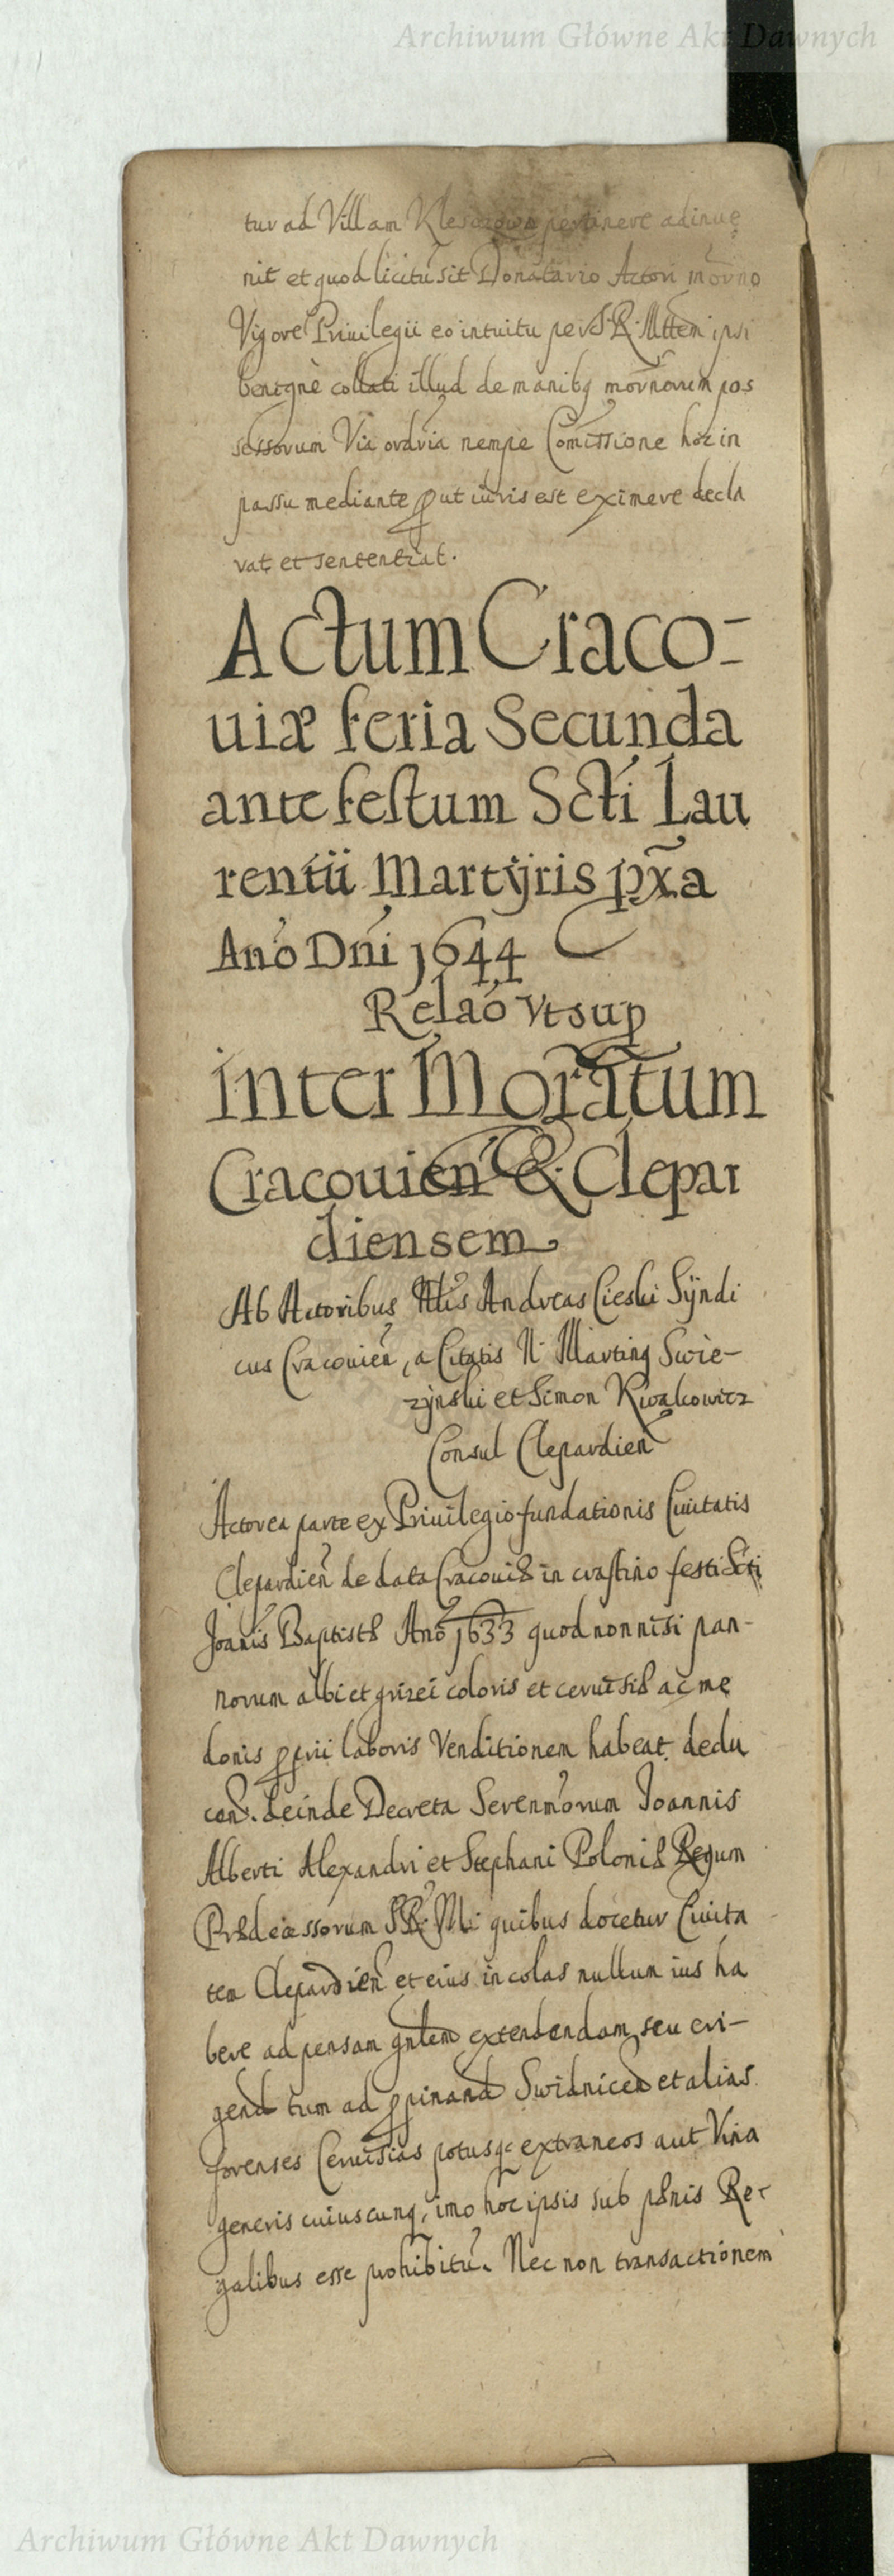 Archiwum Główne Akt Dawnych
tur ad Villam Klesczowa pertinere adinue
nit et quod licitũ sit Donatario Actori mõrno
Vigore Priuilegii eo intuitu per S. R. Mttem ipsi
benignè collati illud de manibq mor̃norum pos
sessorum Via ordria nempe Com̃issione hoc in
passu mediante ꝓut iuris est eximere decla
rat et sententiat.
Actum Craco=
uiæ feria Secunda
ante festum Scti Lau
rentii Martÿris px̃a
Año Dñi 1644
Relaõ Vt sup
inter Moratum
Cracouieñ & Clepar
diensem
Ab Actoribus Nlis Andreas Cieski Sÿndi
cus Cracouieñ, a Citatis N. Martinq Swie-
zÿnski et Simon Kwakowicz
Consul Clepardieñ
Actorea parte ex Priuilegio fundationis Ciuitatis
Clepardieñ de data Cracouiæ in crastino festi Scti
Joãnis Baptistæ Año 1633 quod nonnisi pan-
norum albi et grizei coloris et ceruisiæ ac me
donis ꝓprii laboris Venditionem habeat dedu
cen. deinde Decreta Serenm̃orum Joannis
Alberti Alexandri et Stephani Poloniæ Regum
Prædecessorum S R. M. quibus docetur Ciuita
tem Clepardieñ et eius incolas nullum ius ha
bere ad pensam gnlem extendendam seu eri-
gend tum ad ꝓpinand Swidnicen et alias
forenses Ceruisias potusq extraneos aut Vina
generis cuiuscunq, imo hoc ipsis sub pænis Re-
galibus esse prohibitũ. Nec non transactionem
Archiwum Główne Akt Dawnych